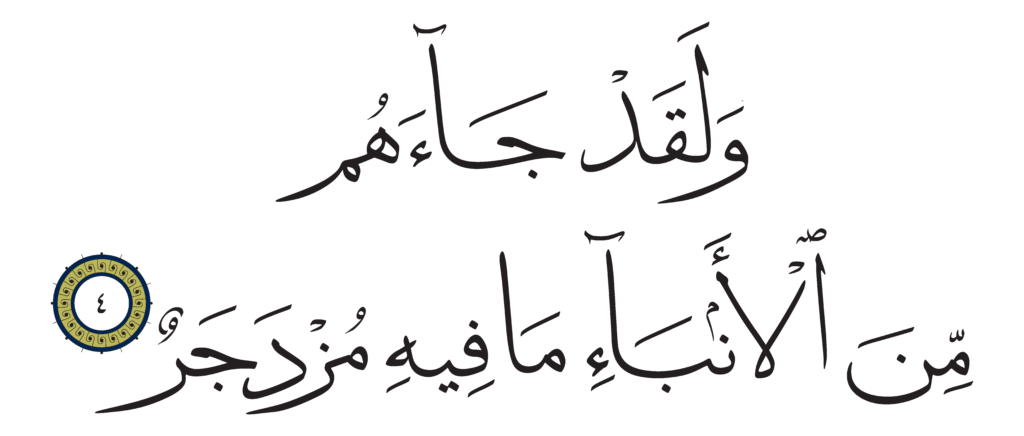 وَلَقَدْ جَآءَهُم
مِّنَ ٱلْأَنۢبَآءِ مَا فِيهِ مُزْدَجَرٌ ٤